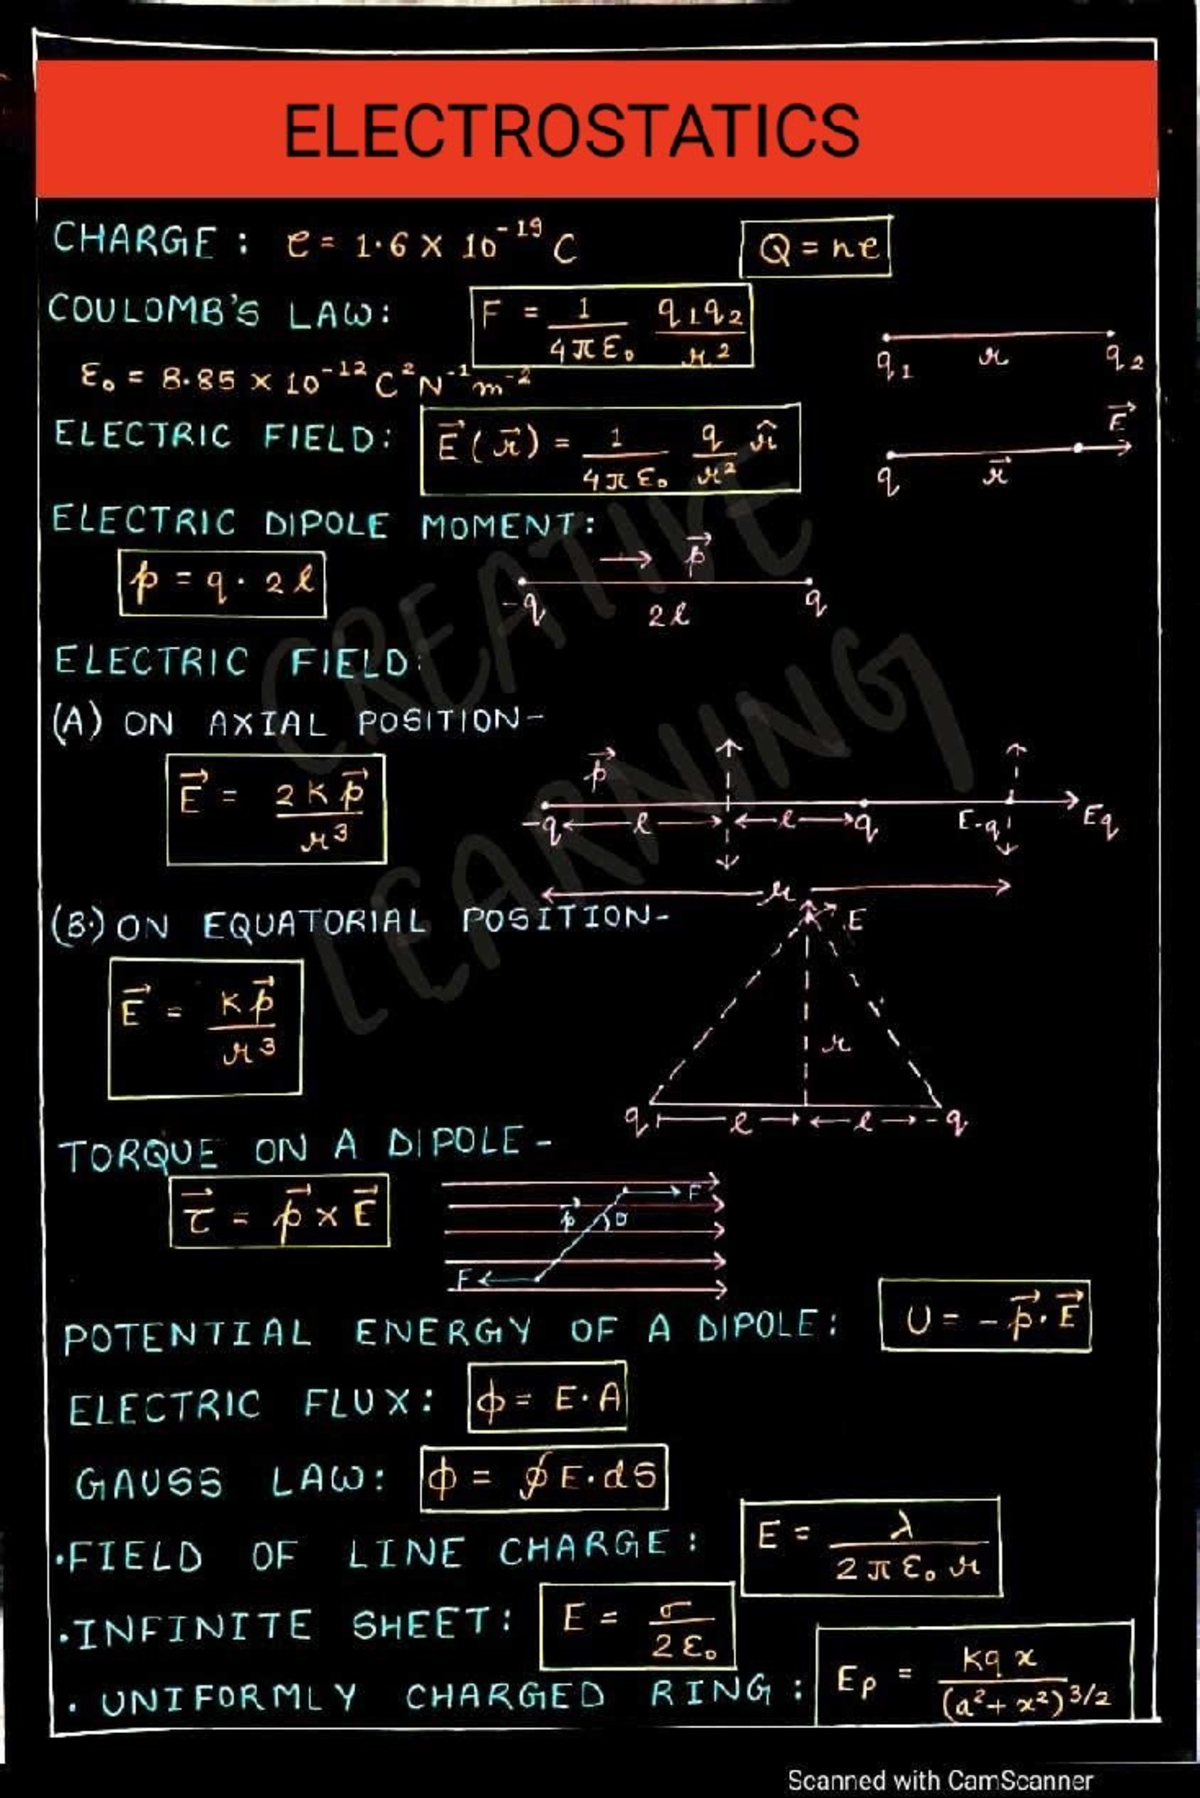 ELECTROSTATICS
CHARGE : e = 1.6 X 10⁻¹⁹ C Q = ne
COULOMB'S LAW: F = 1/4πε₀ q₁q₂/r²
q₁ r q₂
ε₀ = 8.85 × 10⁻¹² C² N⁻¹ m⁻²
ELECTRIC FIELD: E⃗(r⃗) = 1/4πε₀ q/r² r̂
q r⃗ E⃗
ELECTRIC DIPOLE MOMENT:
p = q · 2l
→ p⃗
-q 2l q
ELECTRIC FIELD:
(A) ON AXIAL POSITION-
E⃗ = 2Kp⃗/r³
p⃗
-q l l q E-q Eq
r
(B.) ON EQUATORIAL POSITION-
E
E⃗ = Kp⃗/r³
r
q l l -q
TORQUE ON A DIPOLE -
τ⃗ = p⃗ × E⃗
F
p⃗ θ
F
POTENTIAL ENERGY OF A DIPOLE: U = - p⃗ · E⃗
ELECTRIC FLUX: ϕ = E · A
GAUSS LAW: ϕ = ∮ E · dS
·FIELD OF LINE CHARGE : E = λ/2πε₀r
·INFINITE SHEET: E = σ/2ε₀
· UNIFORMLY CHARGED RING : Ep = kqx/(a² + x²)³/²
CREATIVE
LEARNING
Scanned with CamScanner